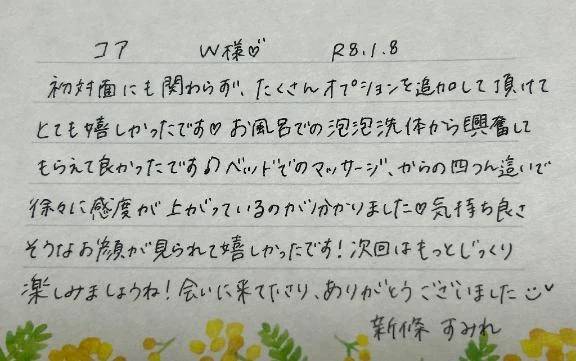 コア W様♡ R8.1.8
初対面にも関わらず、たくさんオプションを追加して頂けて
とても嬉しかったです♡ お風呂での泡泡洗体から興奮して
もらえて良かったです♪ ベッドでのマッサージ、からの四つん這いで
徐々に感度が上がっているのが分かりました♡気持ち良さ
そうなお顔が見られて嬉しかったです!次回はもっとじっくり
楽しみましょうね!会いに来て下さり、ありがとうございました
新條 すみれ